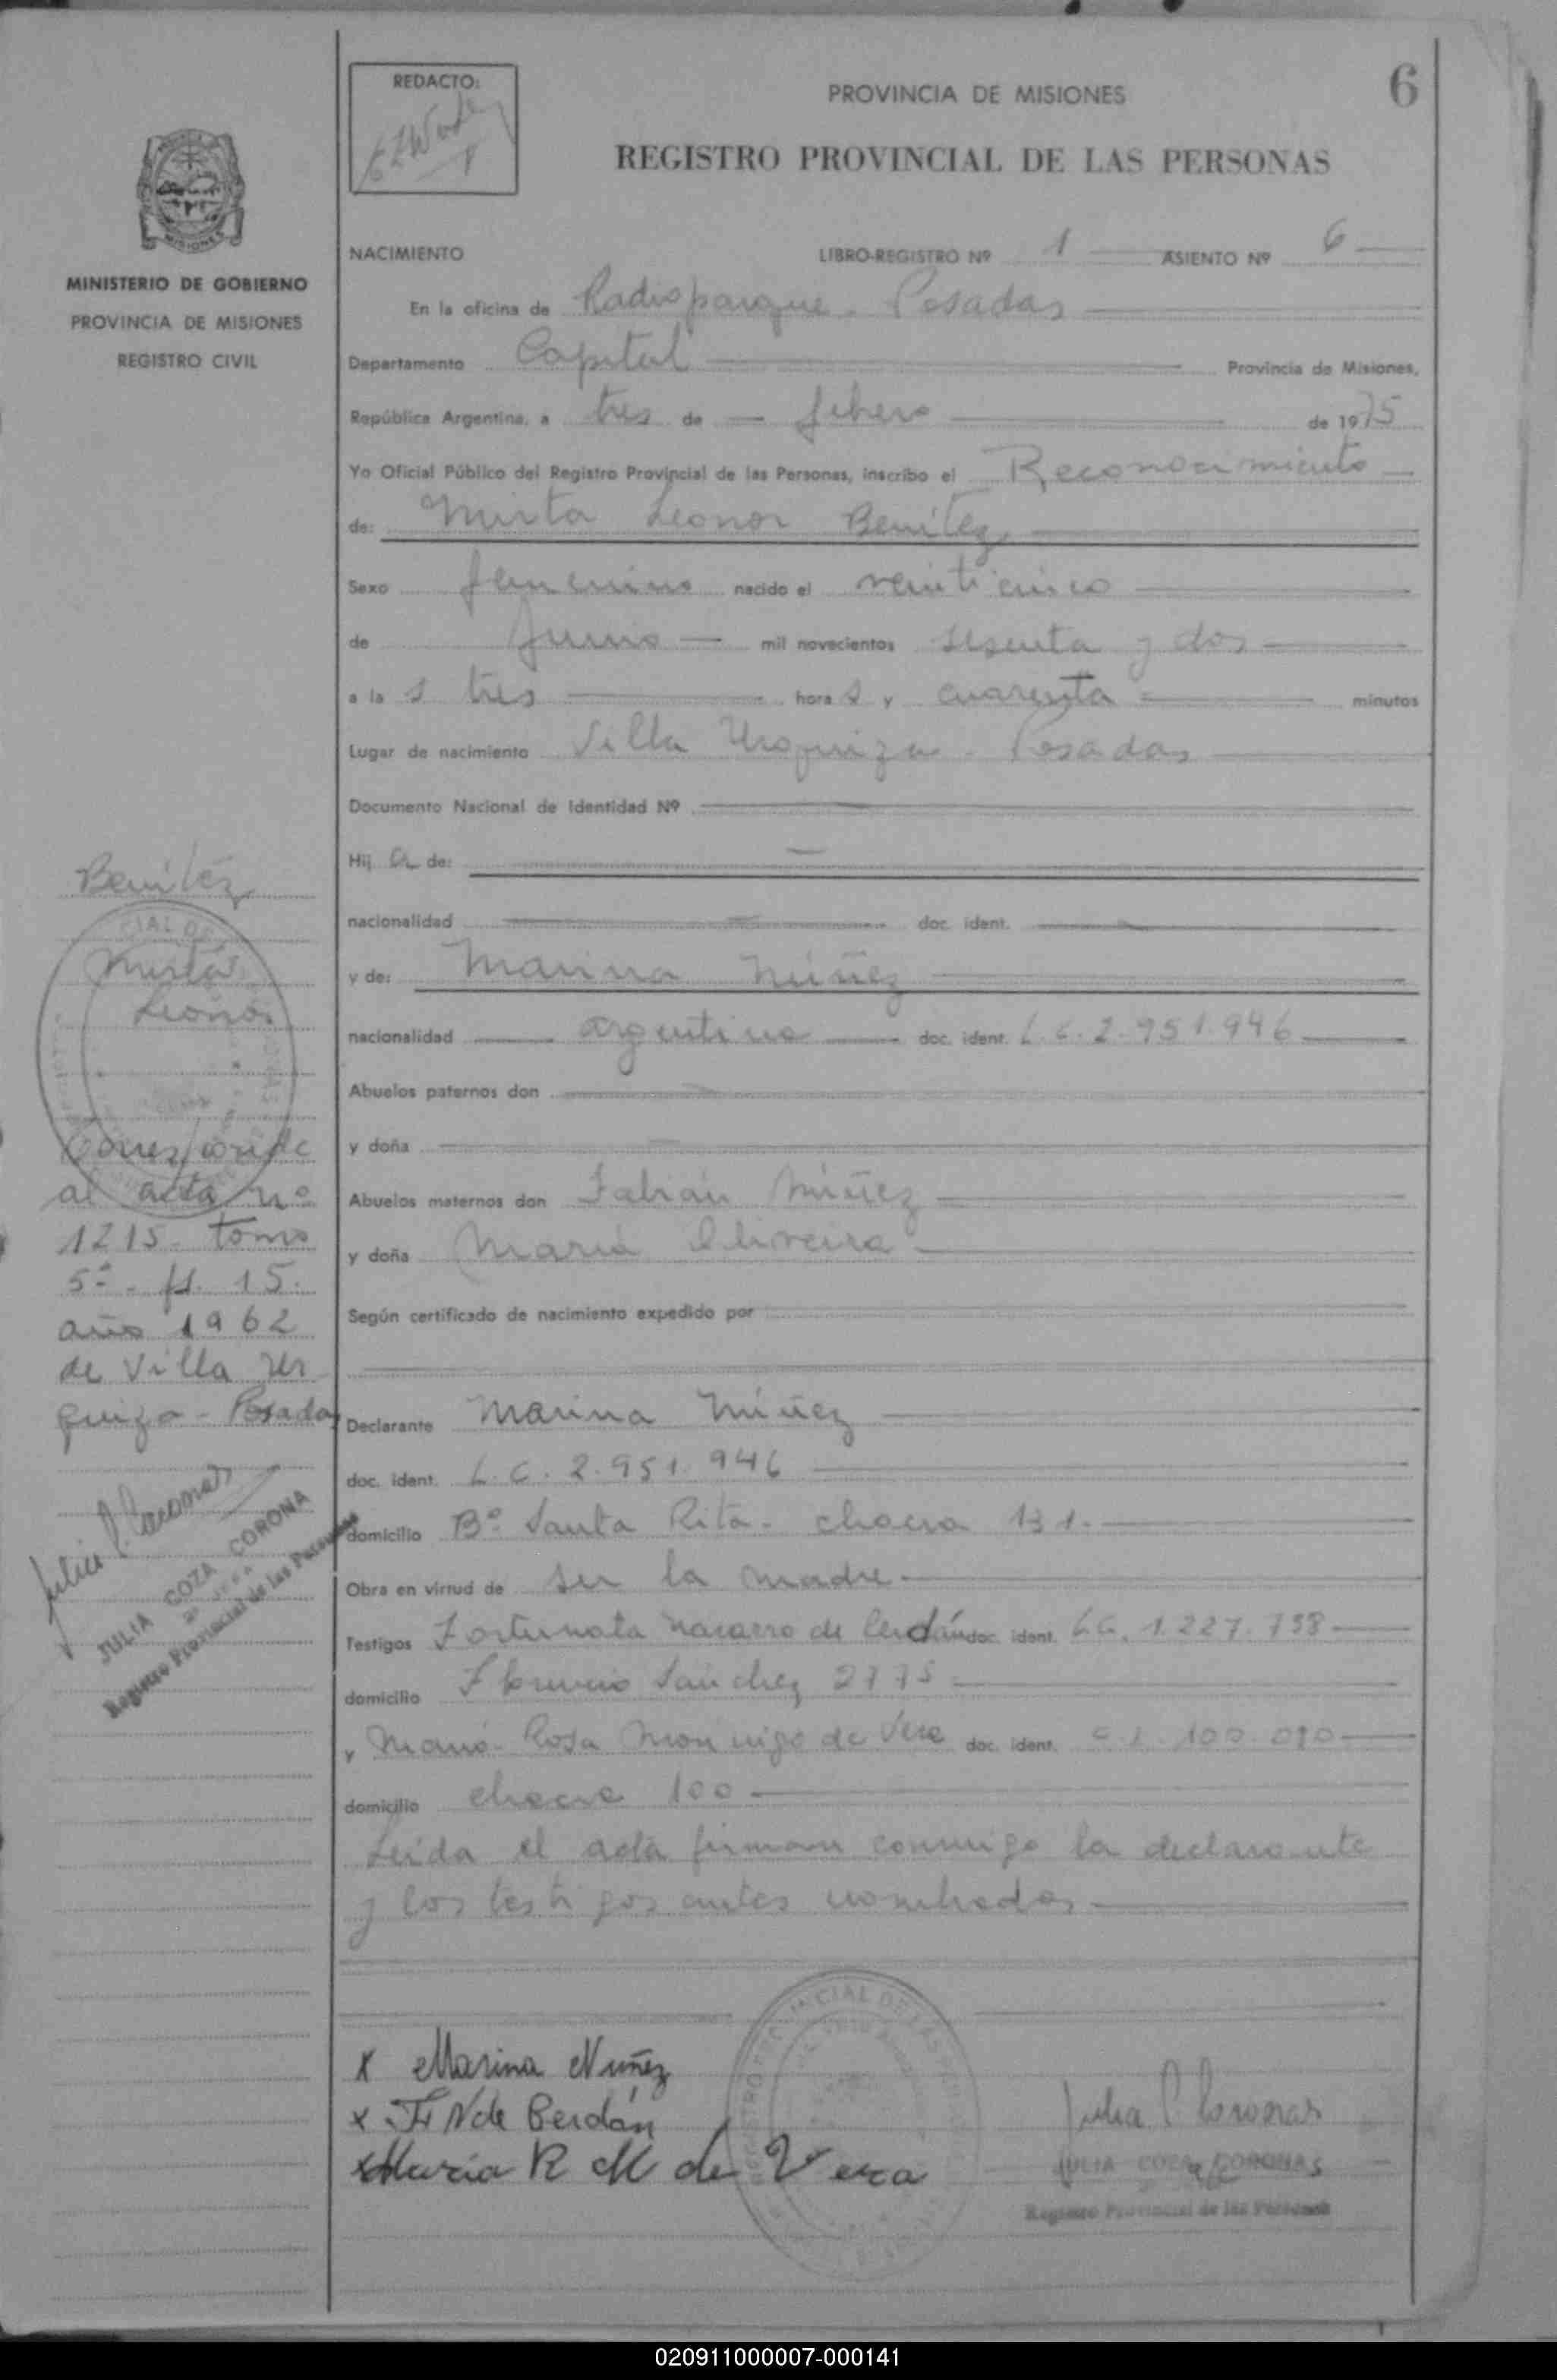 6
REDACTO:
PROVINCIA DE MISIONES
REGISTRO PROVINCIAL DE LAS PERSONAS
MISIONES
MINISTERIO DE GOBIERNO
PROVINCIA DE MISIONES
REGISTRO CIVIL
NACIMIENTO LIBRO-REGISTRO Nº 1 ASIENTO Nº 6
En la oficina de Radioparque - Posadas
Departamento Capital Provincia de Misiones,
República Argentina, a tres de febrero de 1975
Yo Oficial Público del Registro Provincial de las Personas, inscribo el Reconocimiento
de: Mirta Leonor Benítez
Sexo femenino nacido el veinticinco
de Junio mil novecientos sesenta y dos
a las tres horas y cuarenta minutos
Lugar de nacimiento Villa Urquiza - Posadas
Documento Nacional de Identidad Nº
Hija de:
nacionalidad doc. ident.
y de: Marina Núñez
nacionalidad argentina doc. ident. L.C. 2.951.946
Abuelos paternos don
y doña
Abuelos maternos don Fabián Núñez
y doña María Oliveira
Según certificado de nacimiento expedido por
Declarante Marina Núñez
doc. ident. L.C. 2.951.946
domicilio Bº Santa Rita - chacra 131.
Obra en virtud de ser la madre.
Testigos Fortunata Navarro de Cerdán doc. ident. L.C. 1.227.738
domicilio Florencio Sánchez 2775
y María Rosa de Vera doc. ident. C.I. 100.090
domicilio chacra 100
Leída el acta firman conmigo la declarante
y los testigos antes nombrados
Benítez
Mirta
Leonor
Corresponde
al acta nº
1215 - tomo
5º - fs. 15.
año 1962
de Villa Ur
quiza - Posadas
JULIA COZA CORONA
Registro Provincial de las Personas
x Marina Nuñez
x F N de Cerdán
x Maria R M de Vera
Julia C Coronas
JULIA COZA CORONAS
Registro Provincial de las Personas
020911000007-000141